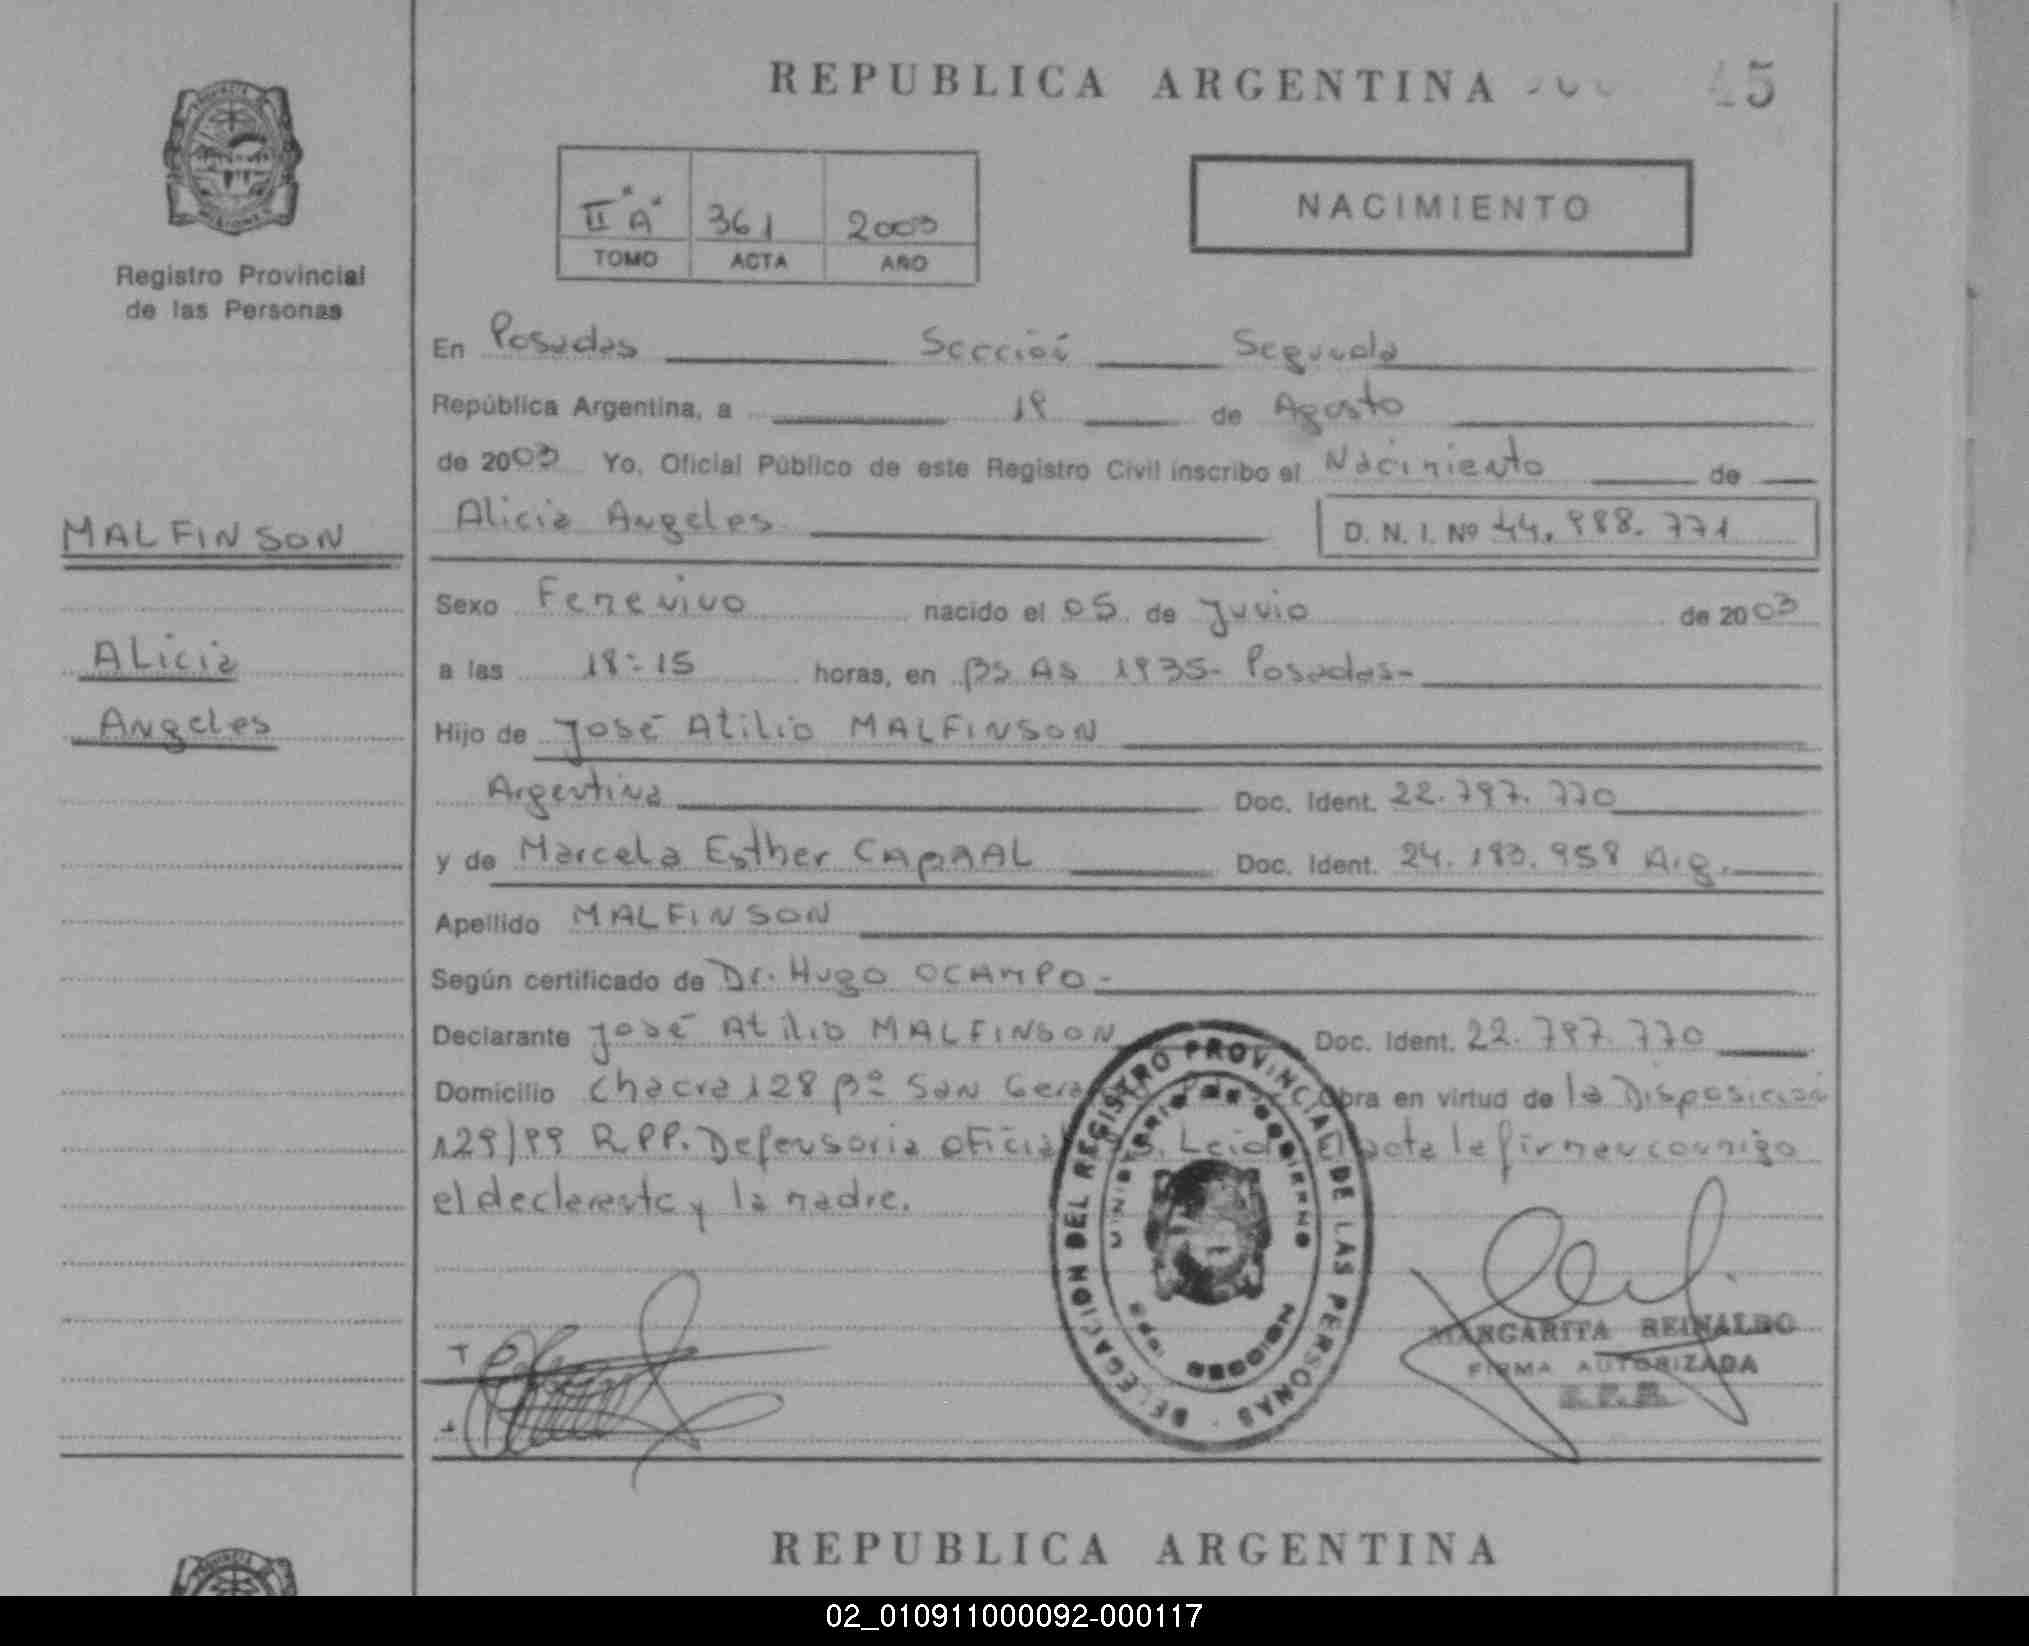 REPUBLICA ARGENTINA 45
NACIMIENTO
II "A" 361 2003
TOMO ACTA AÑO
Registro Provincial
de las Personas
En Posadas Sección Segunda
República Argentina, a 19 de Agosto
de 2003 Yo, Oficial Público de este Registro Civil inscribo el Nacimiento de
Alicia Angeles D. N. I. Nº 44.988.771
MALFINSON
Alicia
Angeles
Sexo Femenino nacido el 05 de Junio de 2003
a las 18:15 horas, en Bs As 1935- Posadas-
Hijo de José Atilio MALFINSON
Argentina Doc. Ident. 22.797.770
y de Marcela Esther CABRAL Doc. Ident. 24.183.958 Arg.
Apellido MALFINSON
Según certificado de Dr. Hugo OCAMPO-
Declarante José Atilio MALFINSON Doc. Ident. 22.797.770
Domicilio Chacra 128 Bº San Obra en virtud de la Disposición
129/99 RPP. Defensoria Oficial Leida El acta la firman conmigo
el declarante y la madre.
DELEGACION DEL REGISTRO PROVINCIAL DE LAS PERSONAS
MINISTERIO DE GOBIERNO
MARGARITA REINALDO
FIRMA AUTORIZADA
REPUBLICA ARGENTINA
02_010911000092-000117